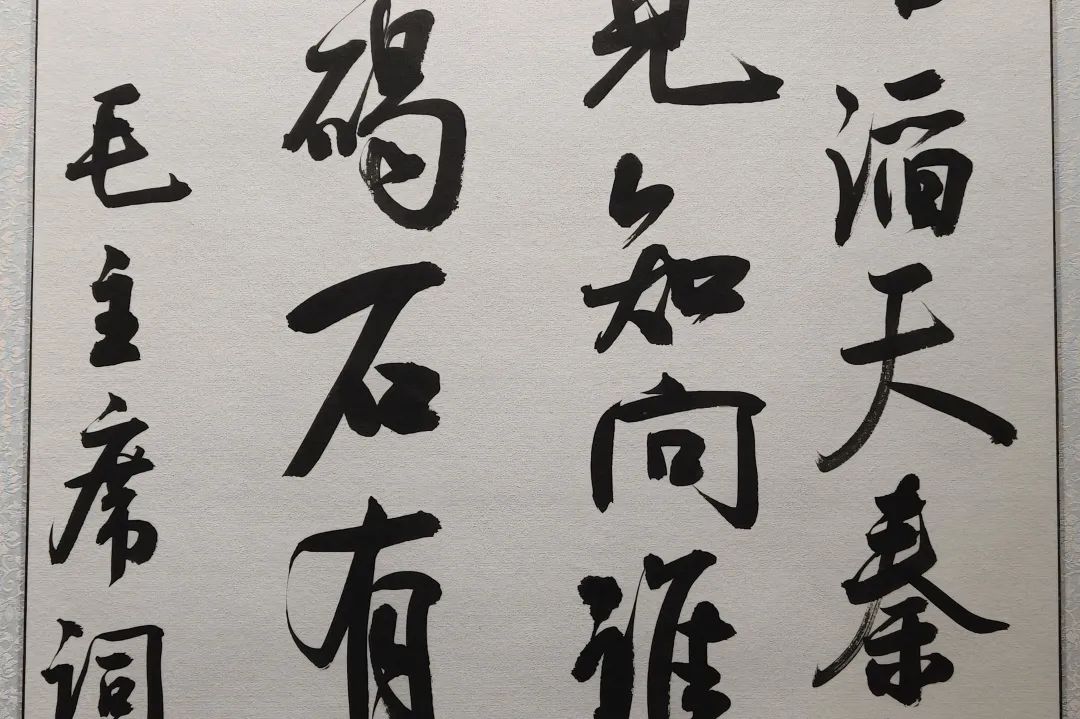 滔天秦
見知向谁
碣石有
毛主席词